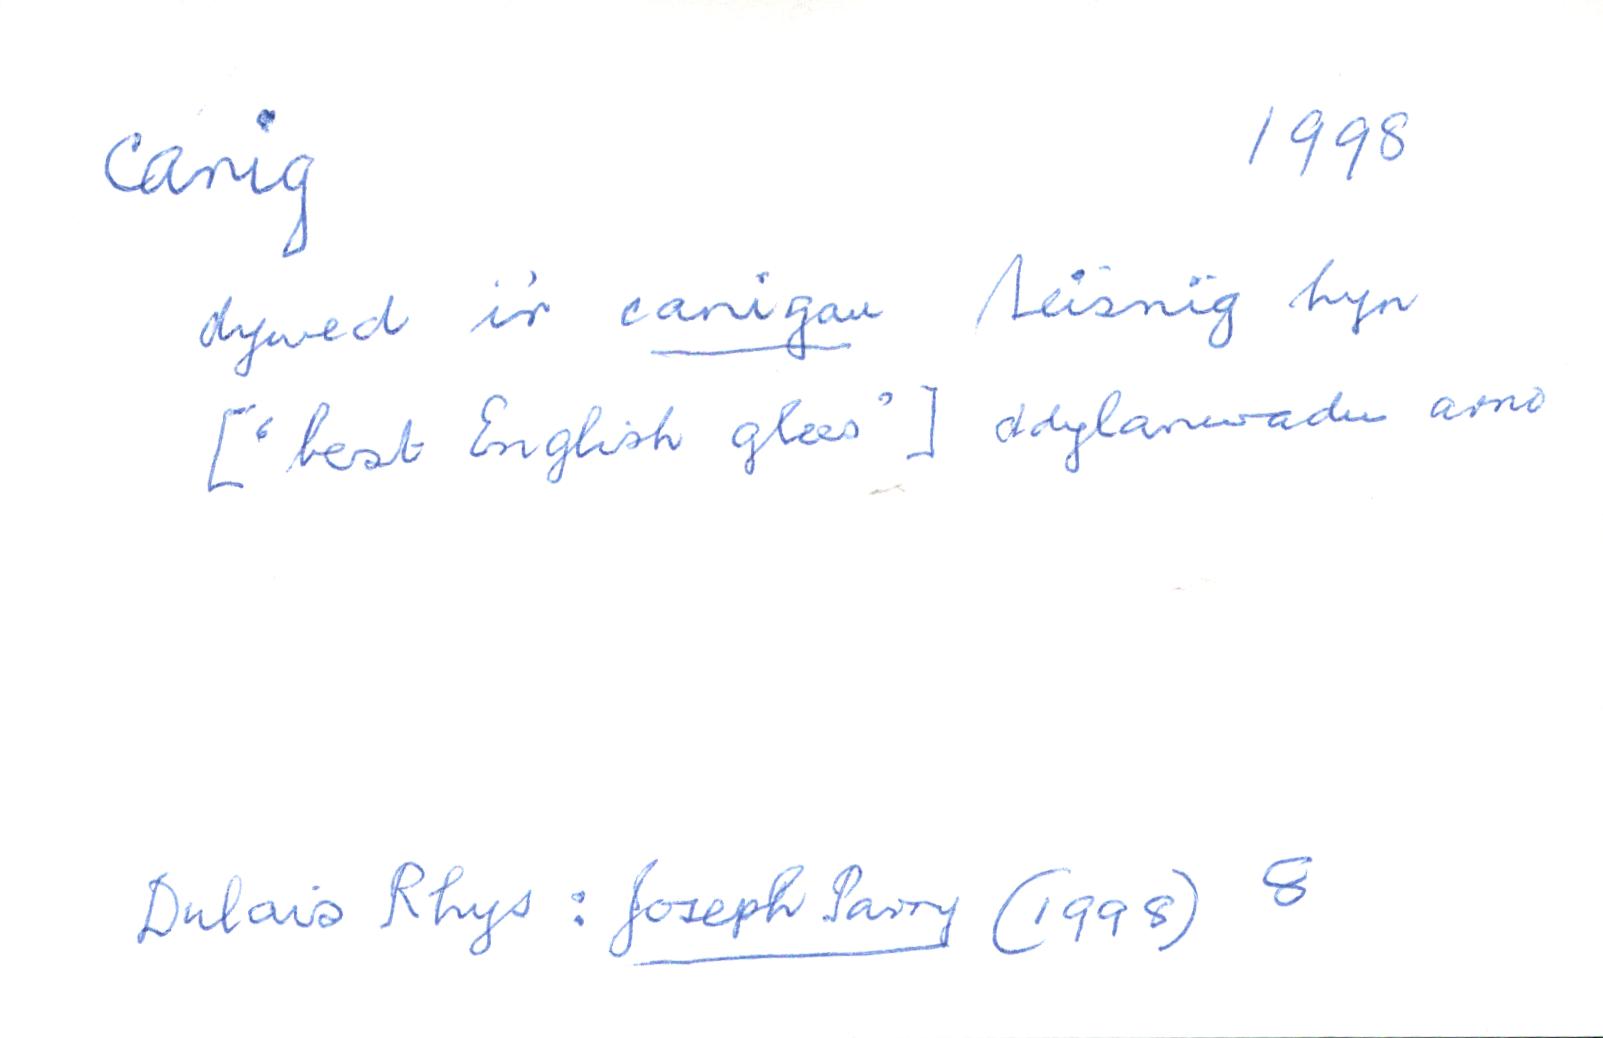 canig 1998
dywed i'r canigau Seisnig hyn
['best English glees'] ddylanwadu arno
Dulais Rhys : Joseph Parry (1998) 8